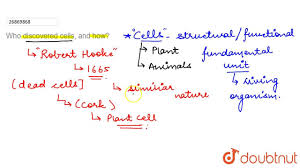 26869868
Who discovered cells, and how?
↳ "Robert Hooke"
↳ 1665
(dead cells]
↳ (cork)
↳ Plant cell
* "Cells" - structural/functional
→ Plant
→ Animals
fundamental
unit
↳ living
organism.
↳ similiar
nature
doubtnut